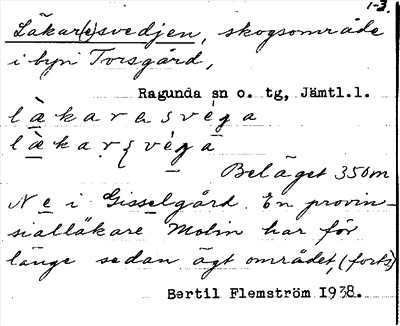 1-3.
Läkar(e)svedjen, skogsområde
i byn Torsgård,
Ragunda sn o. tg, Jämtl.l.
Beläget 350m
N e i Gisselgård. En provin-
sialläkare Molin har för
länge sedan ägt området, (forts)
Bertil Flemström 1938.